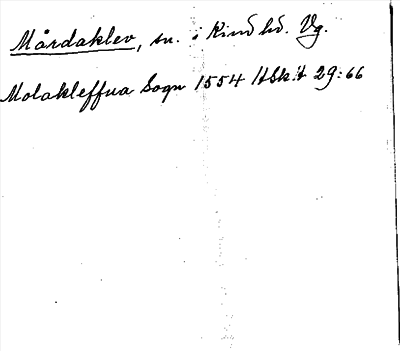 Mårdaklev, sn. i Kind hd. Vg.
Molakleffua Sogn 1554 HSH 29:66